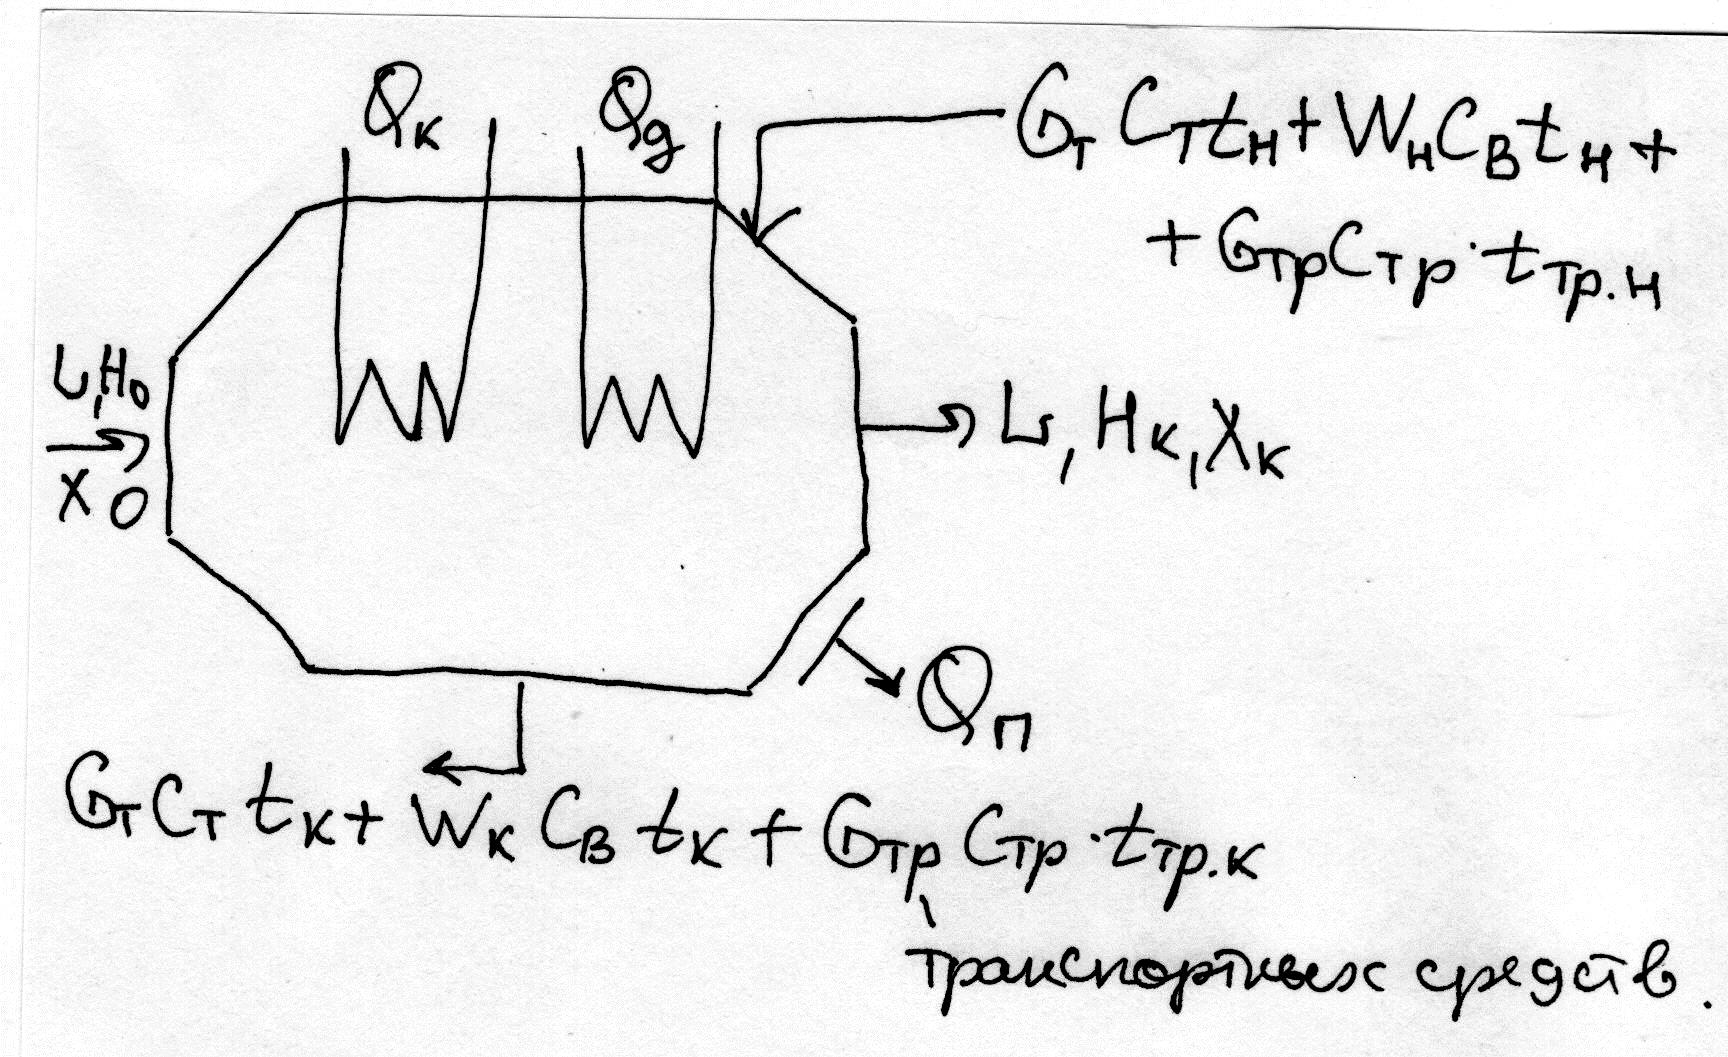 Qк
Qд
GтCтtн+WнCвtн+
+GтрCтр·tтр.н
L,H₀
x₀
L,Hк,Xк
Qп
GтCтtк+WкCвtк+GтрCтр·tтр.к
транспортных средств.